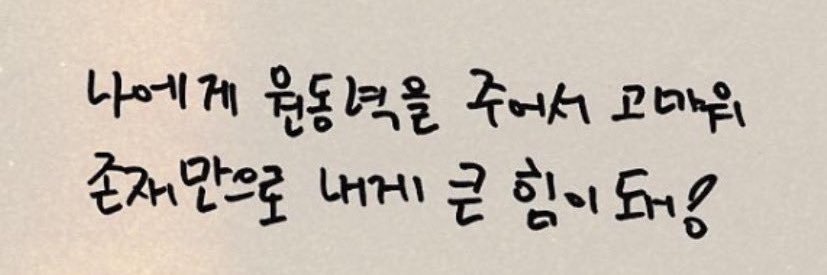 나에게 원동력을 주어서 고마워
존재만으로 내게 큰 힘이 돼!